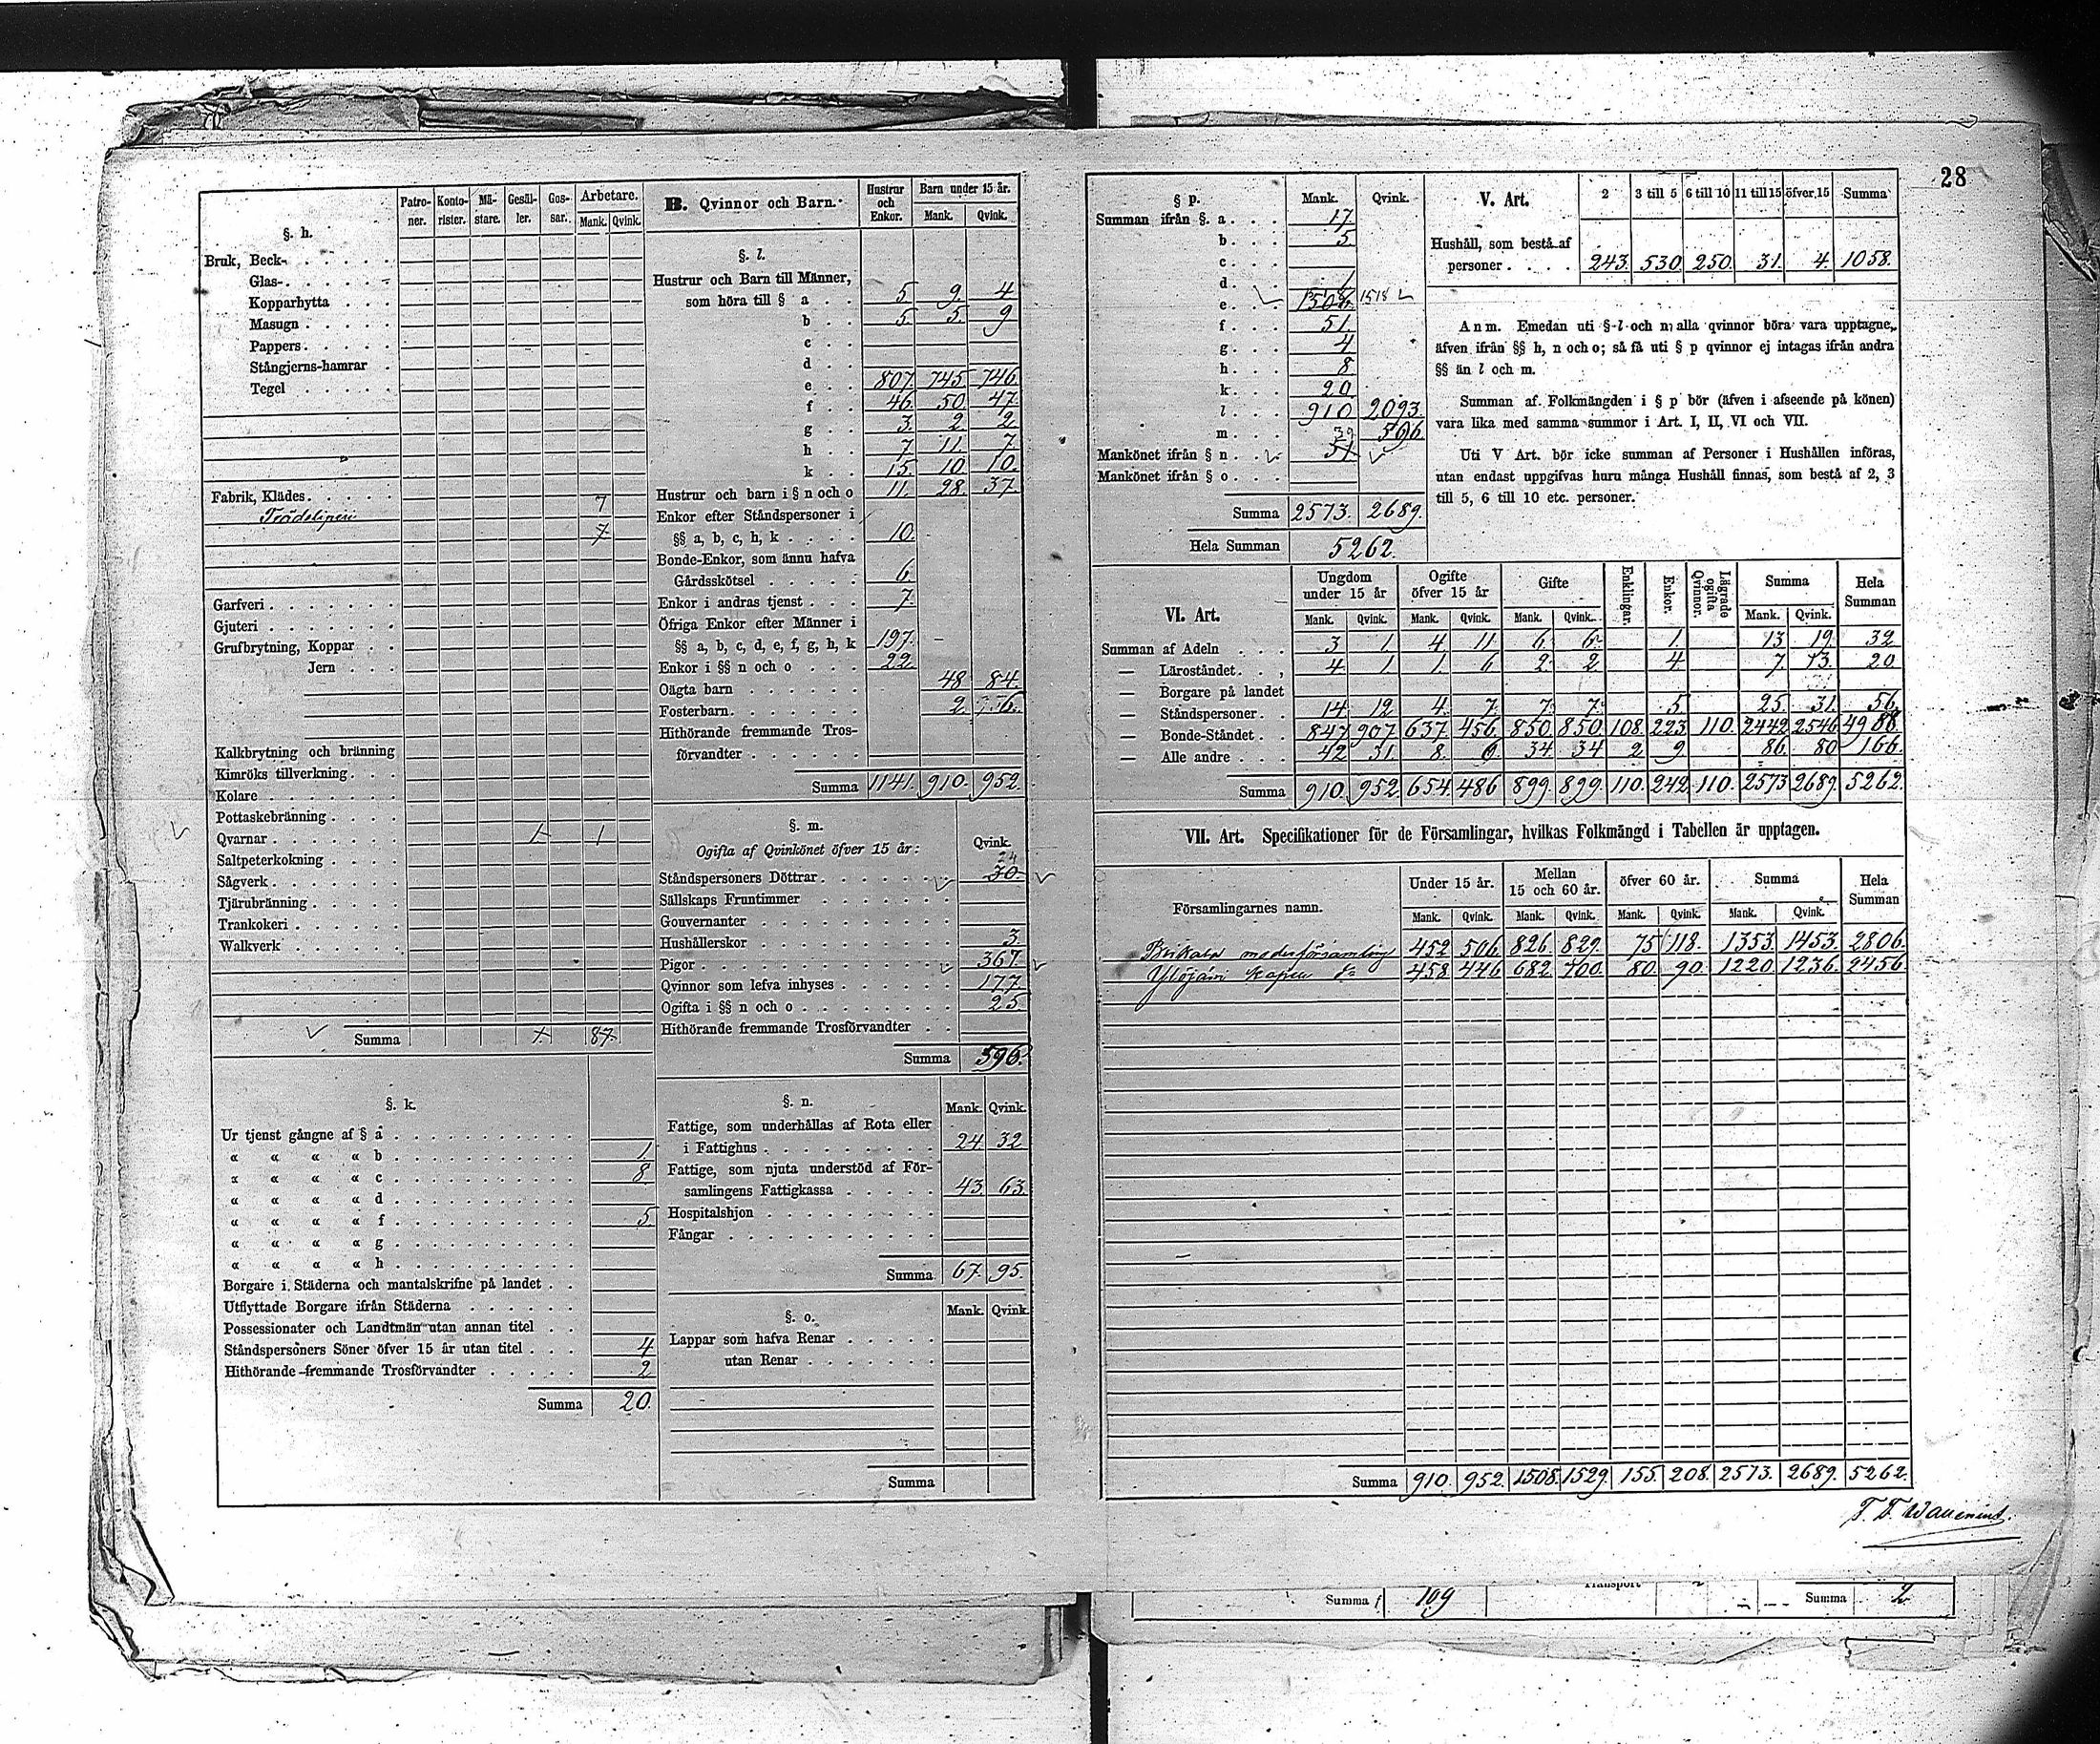 §. h.
Patro-ner. Konto-rister. Mä-stare. Gesäl-ler. Gos-sar. Arbetare.
Mank. Qvink.
Bruk, Beck-
Glas-
Kopparhytta
Masugn
Pappers
Stångjerns-hamrar
Tegel
Fabrik, Klädes 7
7
Garfveri
Gjuteri
Grufbrytning, Koppar
Jern
Kalkbrytning och bränning
Kimröks tillverkning
Kolare
Pottaskebränning
Qvarnar 1 1
Saltpeterkokning
Sågverk
Tjärubränning
Trankokeri
Walkverk
Summa
§. k.
Ur tjenst gångne af § a
« « « « b 1
« « « « c 8
« « « « d
« « « « f 5
« « « « g
« « « « h
Borgare i Städerna och mantalskrifne på landet
Utflyttade Borgare ifrån Städerna
Possessionater och Landtmän utan annan titel
Ståndspersoners Söner öfver 15 år utan titel 4
Hithörande fremmande Trosförvandter 2
Summa 20.
B. Qvinnor och Barn.
Hustrur och Enkor. Barn under 15 år.
Mank. Qvink.
§. l.
Hustrur och Barn till Männer,
som höra till § a 5 9 4
b 5 5 9
c
d
e 807 745 746
f 46 50 47
g 3 2 2
h 7 11 7
k 15 10 10
Hustrur och barn i § n och o 11 28 37
Enkor efter Ståndspersoner i
§§ a, b, c, h, k 10.
Bonde-Enkor, som ännu hafva
Gårdsskötsel 6.
Enkor i andras tjenst 7.
Öfriga Enkor efter Männer i
§§ a, b, c, d, e, f, g, h, k 197.
Enkor i §§ n och o 22.
Oägta barn 48 84.
Fosterbarn 2 6.
Hithörande fremmande Tros-
förvandter
Summa 1141. 910. 952.
§. m.
Ogifta af Qvinkönet öfver 15 år: Qvink.
24
Ståndspersoners Döttrar 30
Sällskaps Fruntimmer
Gouvernanter
Hushållerskor 3
Pigor 367
Qvinnor som lefva inhyses 177
Ogifta i §§ n och o 25.
Hithörande fremmande Trosförvandter
Summa 596.
§. n. Mank. Qvink.
Fattige, som underhållas af Rota eller
i Fattighus 24 32
Fattige, som njuta understöd af För-
samlingens Fattigkassa 43 63.
Hospitalshjon
Fångar
Summa 67. 95.
§. o. Mank. Qvink.
Lappar som hafva Renar
utan Renar
Summa
28
§ p. Mank. Qvink.
Summan ifrån §. a 17
b 5
c
d 1
e 1518
f 51.
g 4
h 8
k 20.
l 910 2093.
m 596
Mankönet ifrån § n 39 51
Mankönet ifrån § o
Summa 2573. 2689.
Hela Summan 5262.
V. Art. 2 3 till 5 6 till 10 11 till 15 öfver 15 Summa
Hushåll, som bestå af
personer 243. 530. 250. 31. 4. 1058.
Anm. Emedan uti § l och n alla qvinnor böra vara upptagne,
äfven ifrån §§ h, n och o; så få uti § p qvinnor ej intagas ifrån andra
§§ än l och m.
Summan af Folkmängden i § p bör (äfven i afseende på könen)
vara lika med samma summor i Art. I, II, VI och VII.
Uti V Art. bör icke summan af Personer i Hushållen införas,
utan endast uppgifvas huru många Hushåll finnas, som bestå af 2, 3
till 5, 6 till 10 etc. personer.
VI. Art. Ungdom under 15 år Ogifte öfver 15 år Gifte Enklingar. Enkor. Lägrade ogifta Qvinnor. Summa Hela Summan
Mank. Qvink. Mank. Qvink. Mank. Qvink. Mank. Qvink.
Summan af Adeln 3 1 4 11 6 6 1. 13 19. 32
— Läroståndet 4. 1. 1. 6 2 2 4 7. 13. 20
Borgare på landet
— Ståndspersoner 14 12 4 7 7 7 5 25 31 56
— Bonde-Ståndet 847 907 637 456 850 850 108 223 110. 2442 2546 4988
— Alle andre 42 31. 8. 6 34 34 2 9 86 80 166.
Summa 910. 952 654 486 899 899 110. 242 110. 2573 2689. 5262.
VII. Art. Specifikationer för de Församlingar, hvilkas Folkmängd i Tabellen är upptagen.
Församlingarnes namn. Under 15 år. Mellan 15 och 60 år. öfver 60 år. Summa Hela Summan
Mank. Qvink. Mank. Qvink. Mank. Qvink. Mank. Qvink.
Birkala moderförsamling 452 506 826 829. 75 118. 1353. 1453. 2806.
Ylöjärvi kapell 458. 446 682 700. 80 90. 1220 1236. 2456
Summa 910. 952. 1508. 1529. 155. 208. 2573. 2689. 5262.
Summa 109 Transport Summa 2